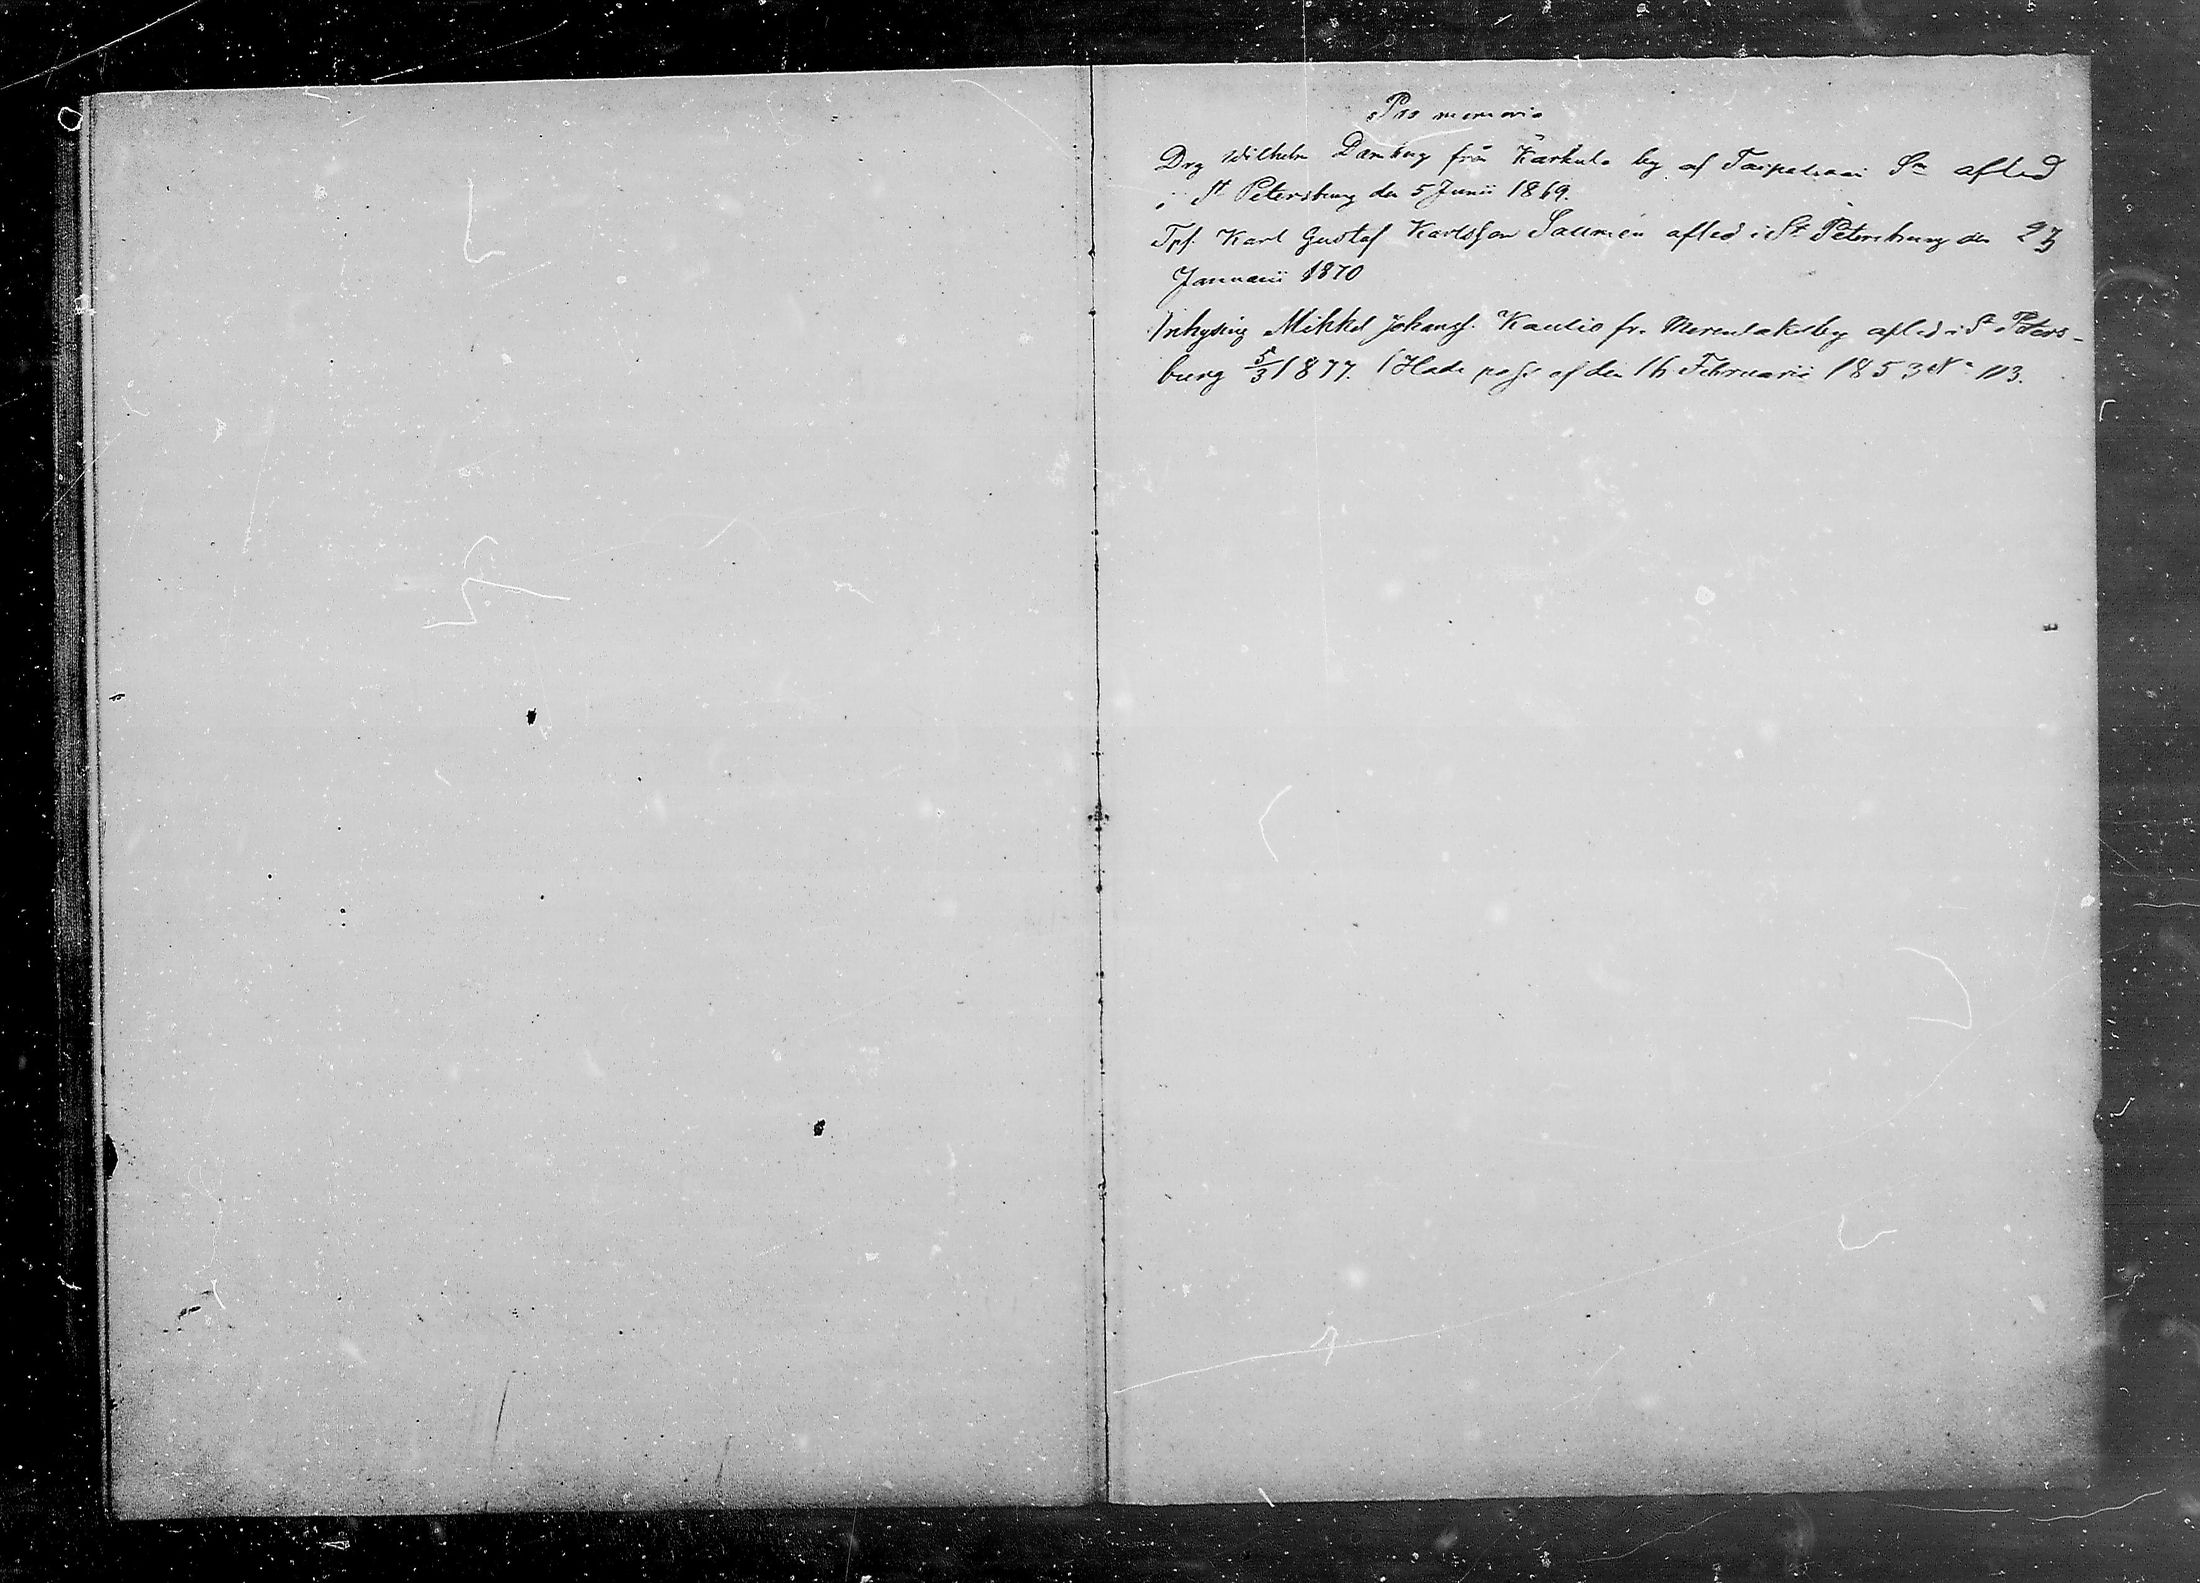 Pro memoria
Drg Wilhelm Damberg från Kärkulo by af Taipalsaari Sn afled
i St Petersburg den 5 Junii 1869.
Tpf. Karl Gustaf Karlsson Saurmén afled i St Petersburg den 27
Januarii 1870
Inhysing Mikkel Johansf. Kautio fr. by afled i St Peters-
burg 5/3 1877. (Hade pass af den 16 Februarii 1853 No 113.